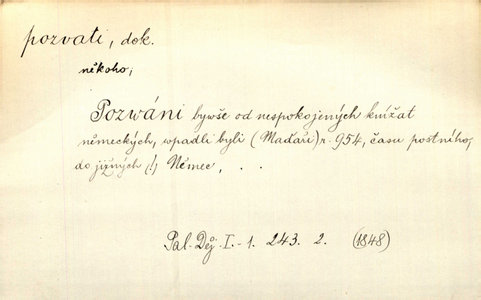 pozvati, dok.
někoho;
Pozwáni bywše od nespokojených knížat
německých, wpadli byli (Maďaři) r. 954, času postního,
do jižných (!) Němec, . .
Pal. Děj. I.-1. 243. 2. (1848)